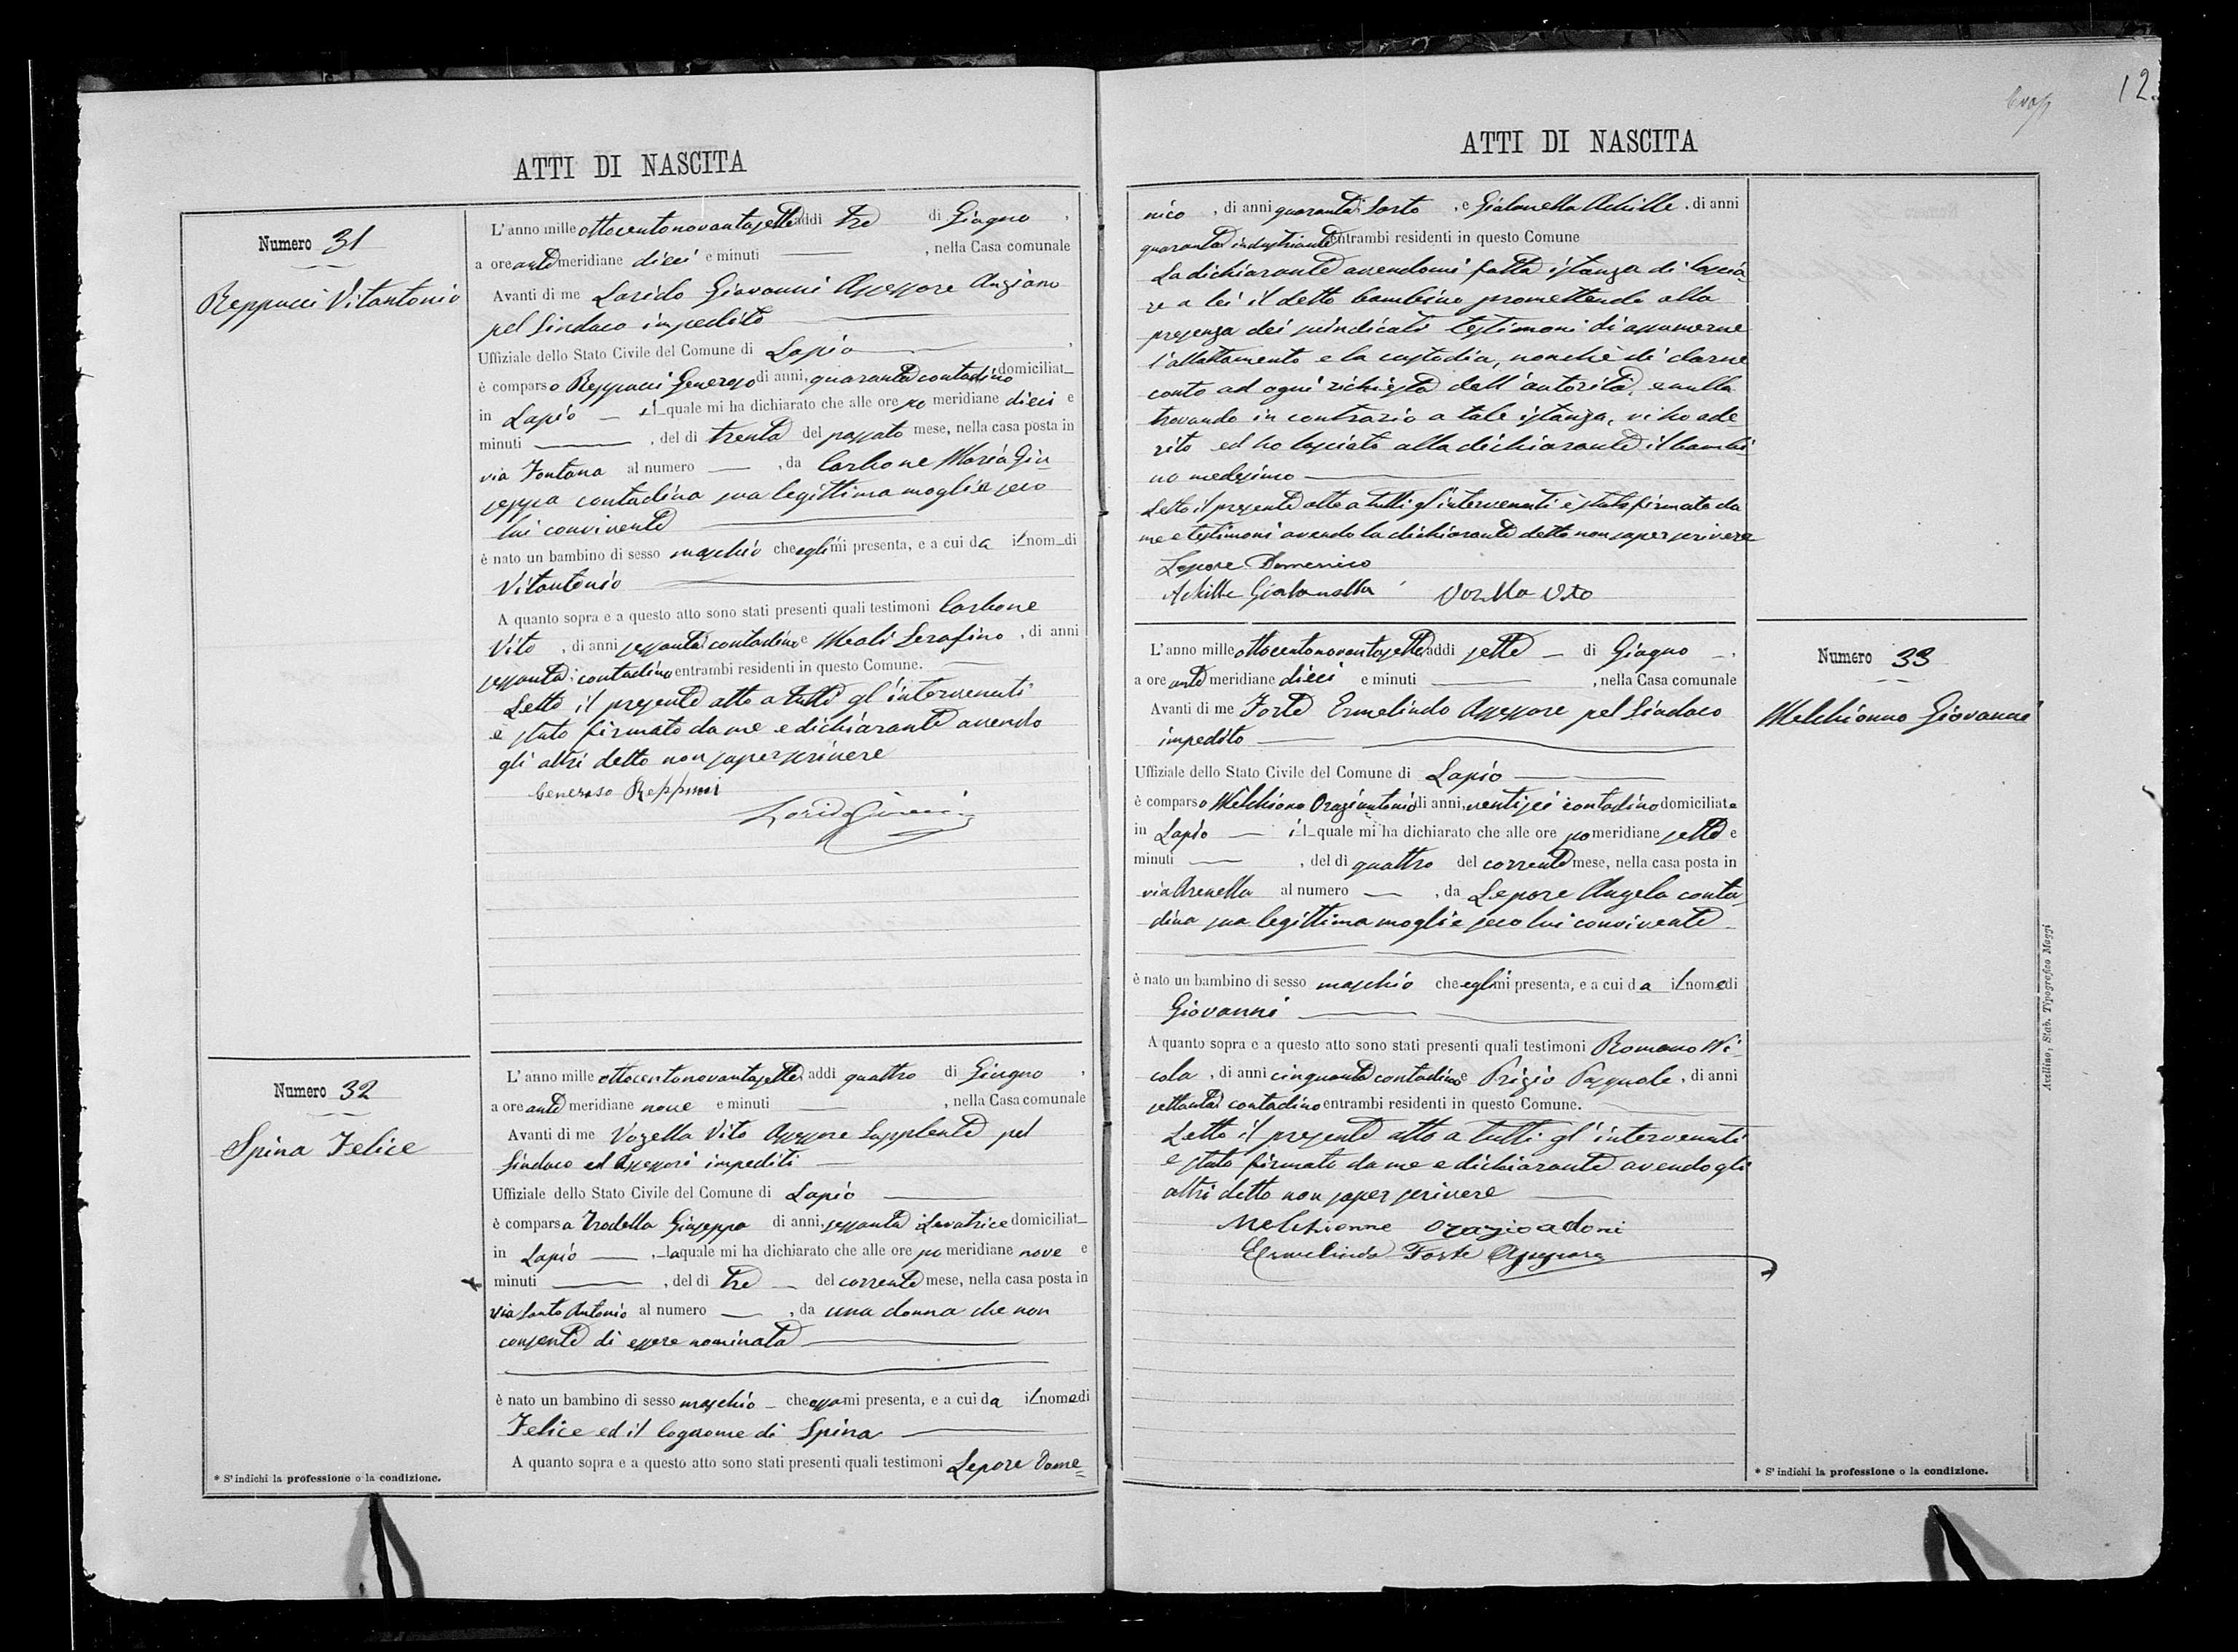 12.
ATTI DI NASCITA
Numero 31
Reppucci Vitantonio
L'anno mille ottocentonovantasette addì tre di Giugno,
a ore ante meridiane dieci e minuti — , nella Casa comunale
Avanti di me Lorido Giovanni Assessore Anziano
pel Sindaco impedito
Uffiziale dello Stato Civile del Comune di Lapio
è comparso Reppucci Generoso di anni, quaranta contadino domiciliat_
in Lapio — il quale mi ha dichiarato che alle ore po meridiane dieci e
minuti — , del dì trenta del passato mese, nella casa posta in
via Fontana al numero — , da Carbone Maria Giu-
seppa contadina sua legittima moglie seco
lui convivente
è nato un bambino di sesso maschio che egli mi presenta, e a cui da il nom_di
Vitantonio
A quanto sopra e a questo atto sono stati presenti quali testimoni Carbone
Vito , di anni sessanta contadino e Meoli Serafino , di anni
sessanta contadino entrambi residenti in questo Comune.
Letto il presente atto a tutti gl'intervenuti
è stato firmato da me e dichiarante avendo
gli altri detto non saper scrivere
Generoso Reppucci
Lorido Giovanni
Numero 32
Spina Felice
L'anno mille ottocentonovantasette addì quattro di Giugno ,
a ore ante meridiane nove e minuti — , nella Casa comunale
Avanti di me Vozella Vito Assessore Supplente pel
Sindaco ed Assessori impediti —
Uffiziale dello Stato Civile del Comune di Lapio
è comparsa Trodella Giuseppa di anni, sessanta Levatrice domiciliat_
in Lapio — , la quale mi ha dichiarato che alle ore po meridiane nove e
minuti — , del dì tre — del corrente mese, nella casa posta in
via Santo Antonio al numero — , da una donna che non
consente di essere nominata
è nato un bambino di sesso maschio — che essa mi presenta, e a cui da il nome di
Felice ed il cognome di Spina
A quanto sopra e a questo atto sono stati presenti quali testimoni Lepore Dome=
* S'indichi la professione o la condizione.
ATTI DI NASCITA
nico , di anni quaranta Sarto , e Gialonella Achille , di anni
quaranta industriante entrambi residenti in questo Comune
La dichiarante avendomi fatta istanza di lascia-
re a lei il detto bambino promettendo alla
presenza dei suindicati testimoni di assumerne
l'allattamento e la custodia, nonchè di darne
conto ad ogni richiesta dell'autorità, e nulla
trovando in contrario a tale istanza, vi ho ade
rito ed ho lasciato alla dichiarante il bambi-
no medesimo
Letto il presente atto a tutti gl'intervenuti è stato firmato da
me e testimoni avendo la dichiarante detto non saper scrivere
Lepore Domenico
Achille Gialonella Vozella Vito
L'anno mille ottocentonovantasette addì sette — di Giugno — ,
a ore ante meridiane dieci e minuti — , nella Casa comunale
Avanti di me Forte Ermelindo Assessore pel Sindaco
impedito
Uffiziale dello Stato Civile del Comune di Lapio
è comparso Melchionno Orazi'antonio di anni, ventisei contadino domiciliato
in Lapio — il quale mi ha dichiarato che alle ore po meridiane sette e
minuti — , del dì quattro del corrente mese, nella casa posta in
via Arenella al numero — , da Lepore Angela conta
dina sua legittima moglie seco lui convivente
è nato un bambino di sesso maschio che egli mi presenta, e a cui da il nome di
Giovanni
A quanto sopra e a questo atto sono stati presenti quali testimoni Romano Ni-
cola , di anni cinquanta contadino e Prizio Pasquale , di anni
settanta contadino entrambi residenti in questo Comune.
Letto il presente atto a tutti gl'intervenuti
e stato firmato da me e dichiarante avendo gli
altri detto non saper scrivere
Melchionne Orazioadoni
Ermelindo Forte Assessore
Numero 33
Melchionno Giovanni
* S'indichi la professione o la condizione.
Avellino, Stab. Tipografico Maggi